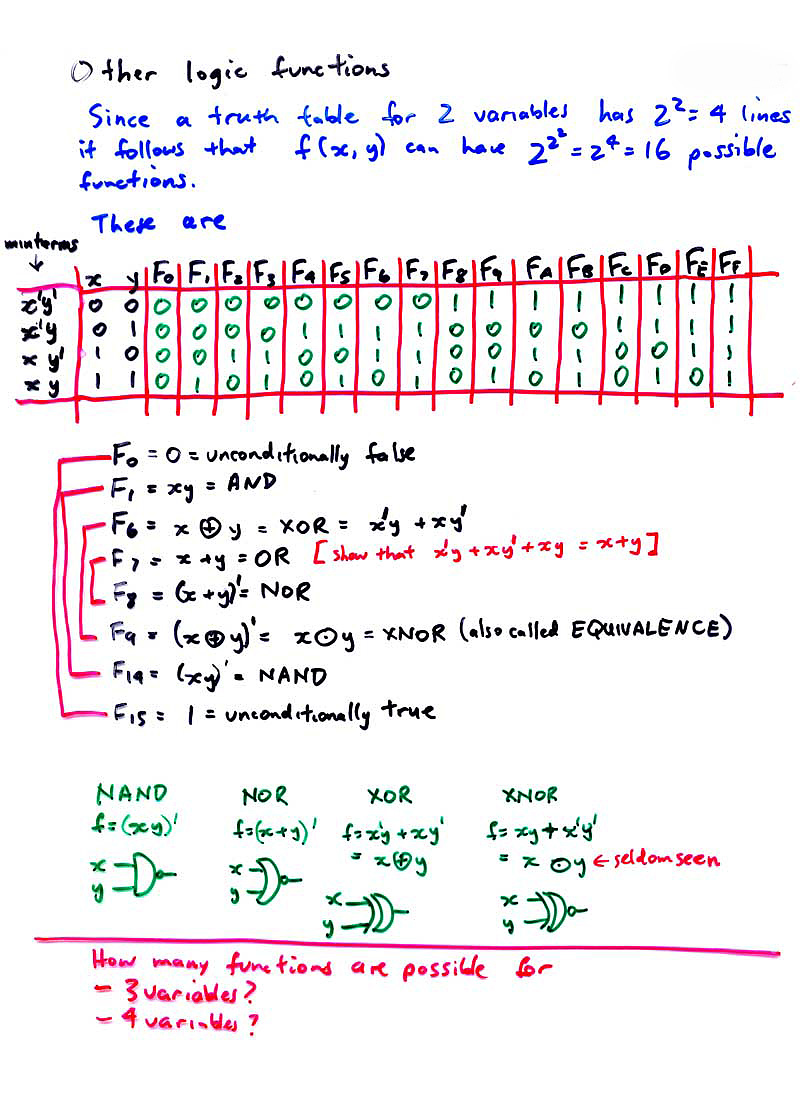 Other logic functions
Since a truth table for 2 variables has 2² = 4 lines
it follows that f(x, y) can have 2^2² = 2⁴ = 16 possible
functions.
These are
minterms
↓ x y F₀ F₁ F₂ F₃ F₄ F₅ F₆ F₇ F₈ F₉ FA FB FC FD FE FF
x'y' 0 0 0 0 0 0 0 0 0 0 1 1 1 1 1 1 1 1
x'y 0 1 0 0 0 0 1 1 1 1 0 0 0 0 1 1 1 1
x y' 1 0 0 0 1 1 0 0 1 1 0 0 1 1 0 0 1 1
x y 1 1 0 1 0 1 0 1 0 1 0 1 0 1 0 1 0 1
F₀ = 0 = unconditionally false
F₁ = xy = AND
F₆ = x ⊕ y = XOR = x'y + xy'
F₇ = x + y = OR [show that x'y + xy' + xy = x + y]
F₈ = (x + y)' = NOR
F₉ = (x ⊕ y)' = x ⊙ y = XNOR (also called EQUIVALENCE)
F₁₄ = (xy)' = NAND
F₁₅ = 1 = unconditionally true
NAND NOR XOR XNOR
f = (xy)' f = (x + y)' f = x'y + xy' f = xy + x'y'
= x ⊕ y = x ⊙ y ← seldom seen
x x x x
y y y y
How many functions are possible for
- 3 variables?
- 4 variables?